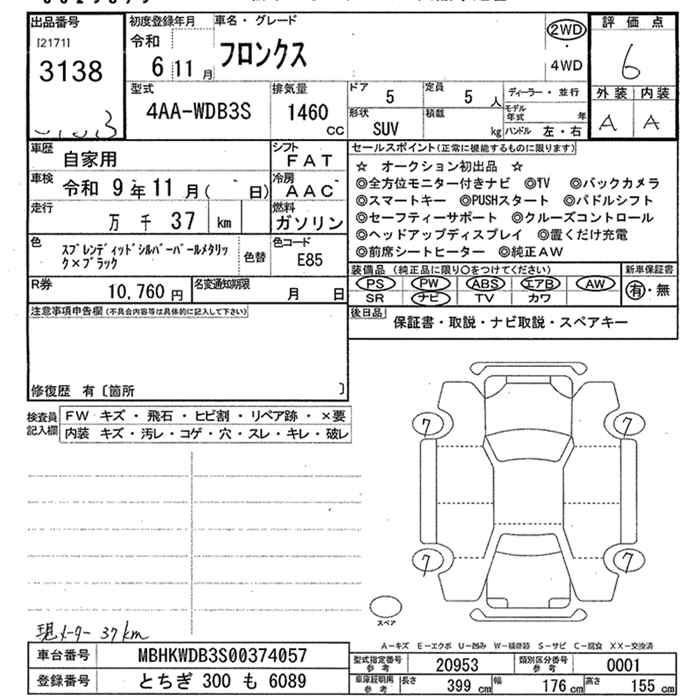 出品番号
[2171]
3138
初度登録年月
令和
6年11月
車名・グレード
フロンクス
2WD
4WD
評価点
6
外装 内装
A A
型式
4AA-WDB3S
排気量
1460
CC
ドア
5
定員
5人
形状
SUV
積載
kg
ディーラー・並行
モデル年式 年
ハンドル 左・右
車歴
自家用
シフト
FAT
車検
令和 9年11月( 日)
冷房
AAC
走行
万 千 37 km
燃料
ガソリン
色
スプレンディッドシルバーパールメタリッ
ク×ブラック
色替
色コード
E85
R券
10,760円
名変通知期限
月 日
セールスポイント(正常に機能するものに限ります)
☆ オークション初出品 ☆
◎全方位モニター付きナビ ◎TV ◎バックカメラ
◎スマートキー ◎PUSHスタート ◎パドルシフト
◎セーフティーサポート ◎クルーズコントロール
◎ヘッドアップディスプレイ ◎置くだけ充電
◎前席シートヒーター ◎純正AW
装備品(純正品に限り○をつけてください)
PS PW ABS エアB AW
SR ナビ TV カワ
新車保証書
有・無
後日品
保証書・取説・ナビ取説・スペアキー
注意事項申告欄(不具合内容等は具体的に記入して下さい)
修復歴 有〔箇所 〕
検査員
記入欄
FW キズ・飛石・ヒビ割・リペア跡・×要
内装 キズ・汚レ・コゲ・穴・スレ・キレ・破レ
7 7
7 7
スペア
現メーター 37km
A-キズ E-エクボ U-凹み W-補修跡 S-サビ C-腐食 XX-交換済
車台番号
MBHKWDB3S00374057
登録番号
とちぎ 300 も 6089
型式指定番号
参考
20953
類別区分番号
参考
0001
車庫証明用
参考
長さ 399 cm 幅 176 cm 高さ 155 cm